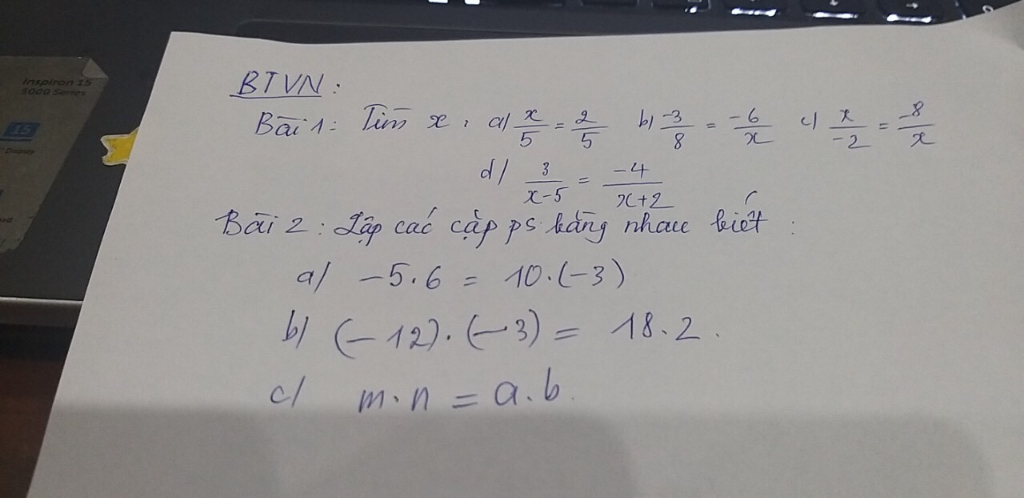 Inspiron 15
5000 Series
15
Display
BTVN:
Bài 1: Tìm x, a/ x/5 = 2/5 b/ -3/8 = -6/x c/ x/-2 = -8/x
d/ 3/x-5 = -4/x+2
Bài 2: Lập các cặp ps bằng nhau biết:
a/ -5.6 = 10.(-3)
b/ (-12).(-3) = 18.2.
c/ m.n = a.b.